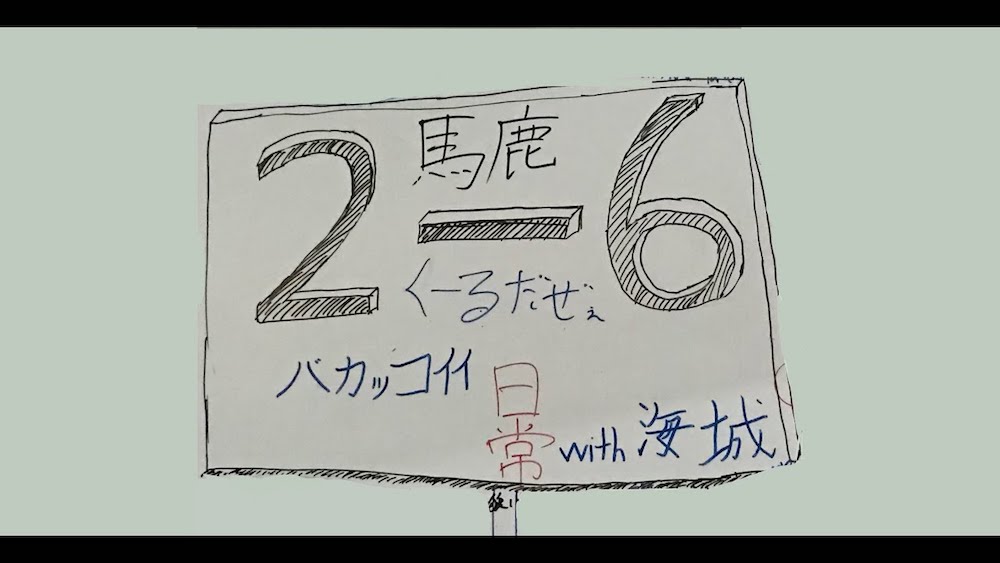 馬鹿
2-6
くーるだぜぇ
バカッコイイ
日常
with 海城